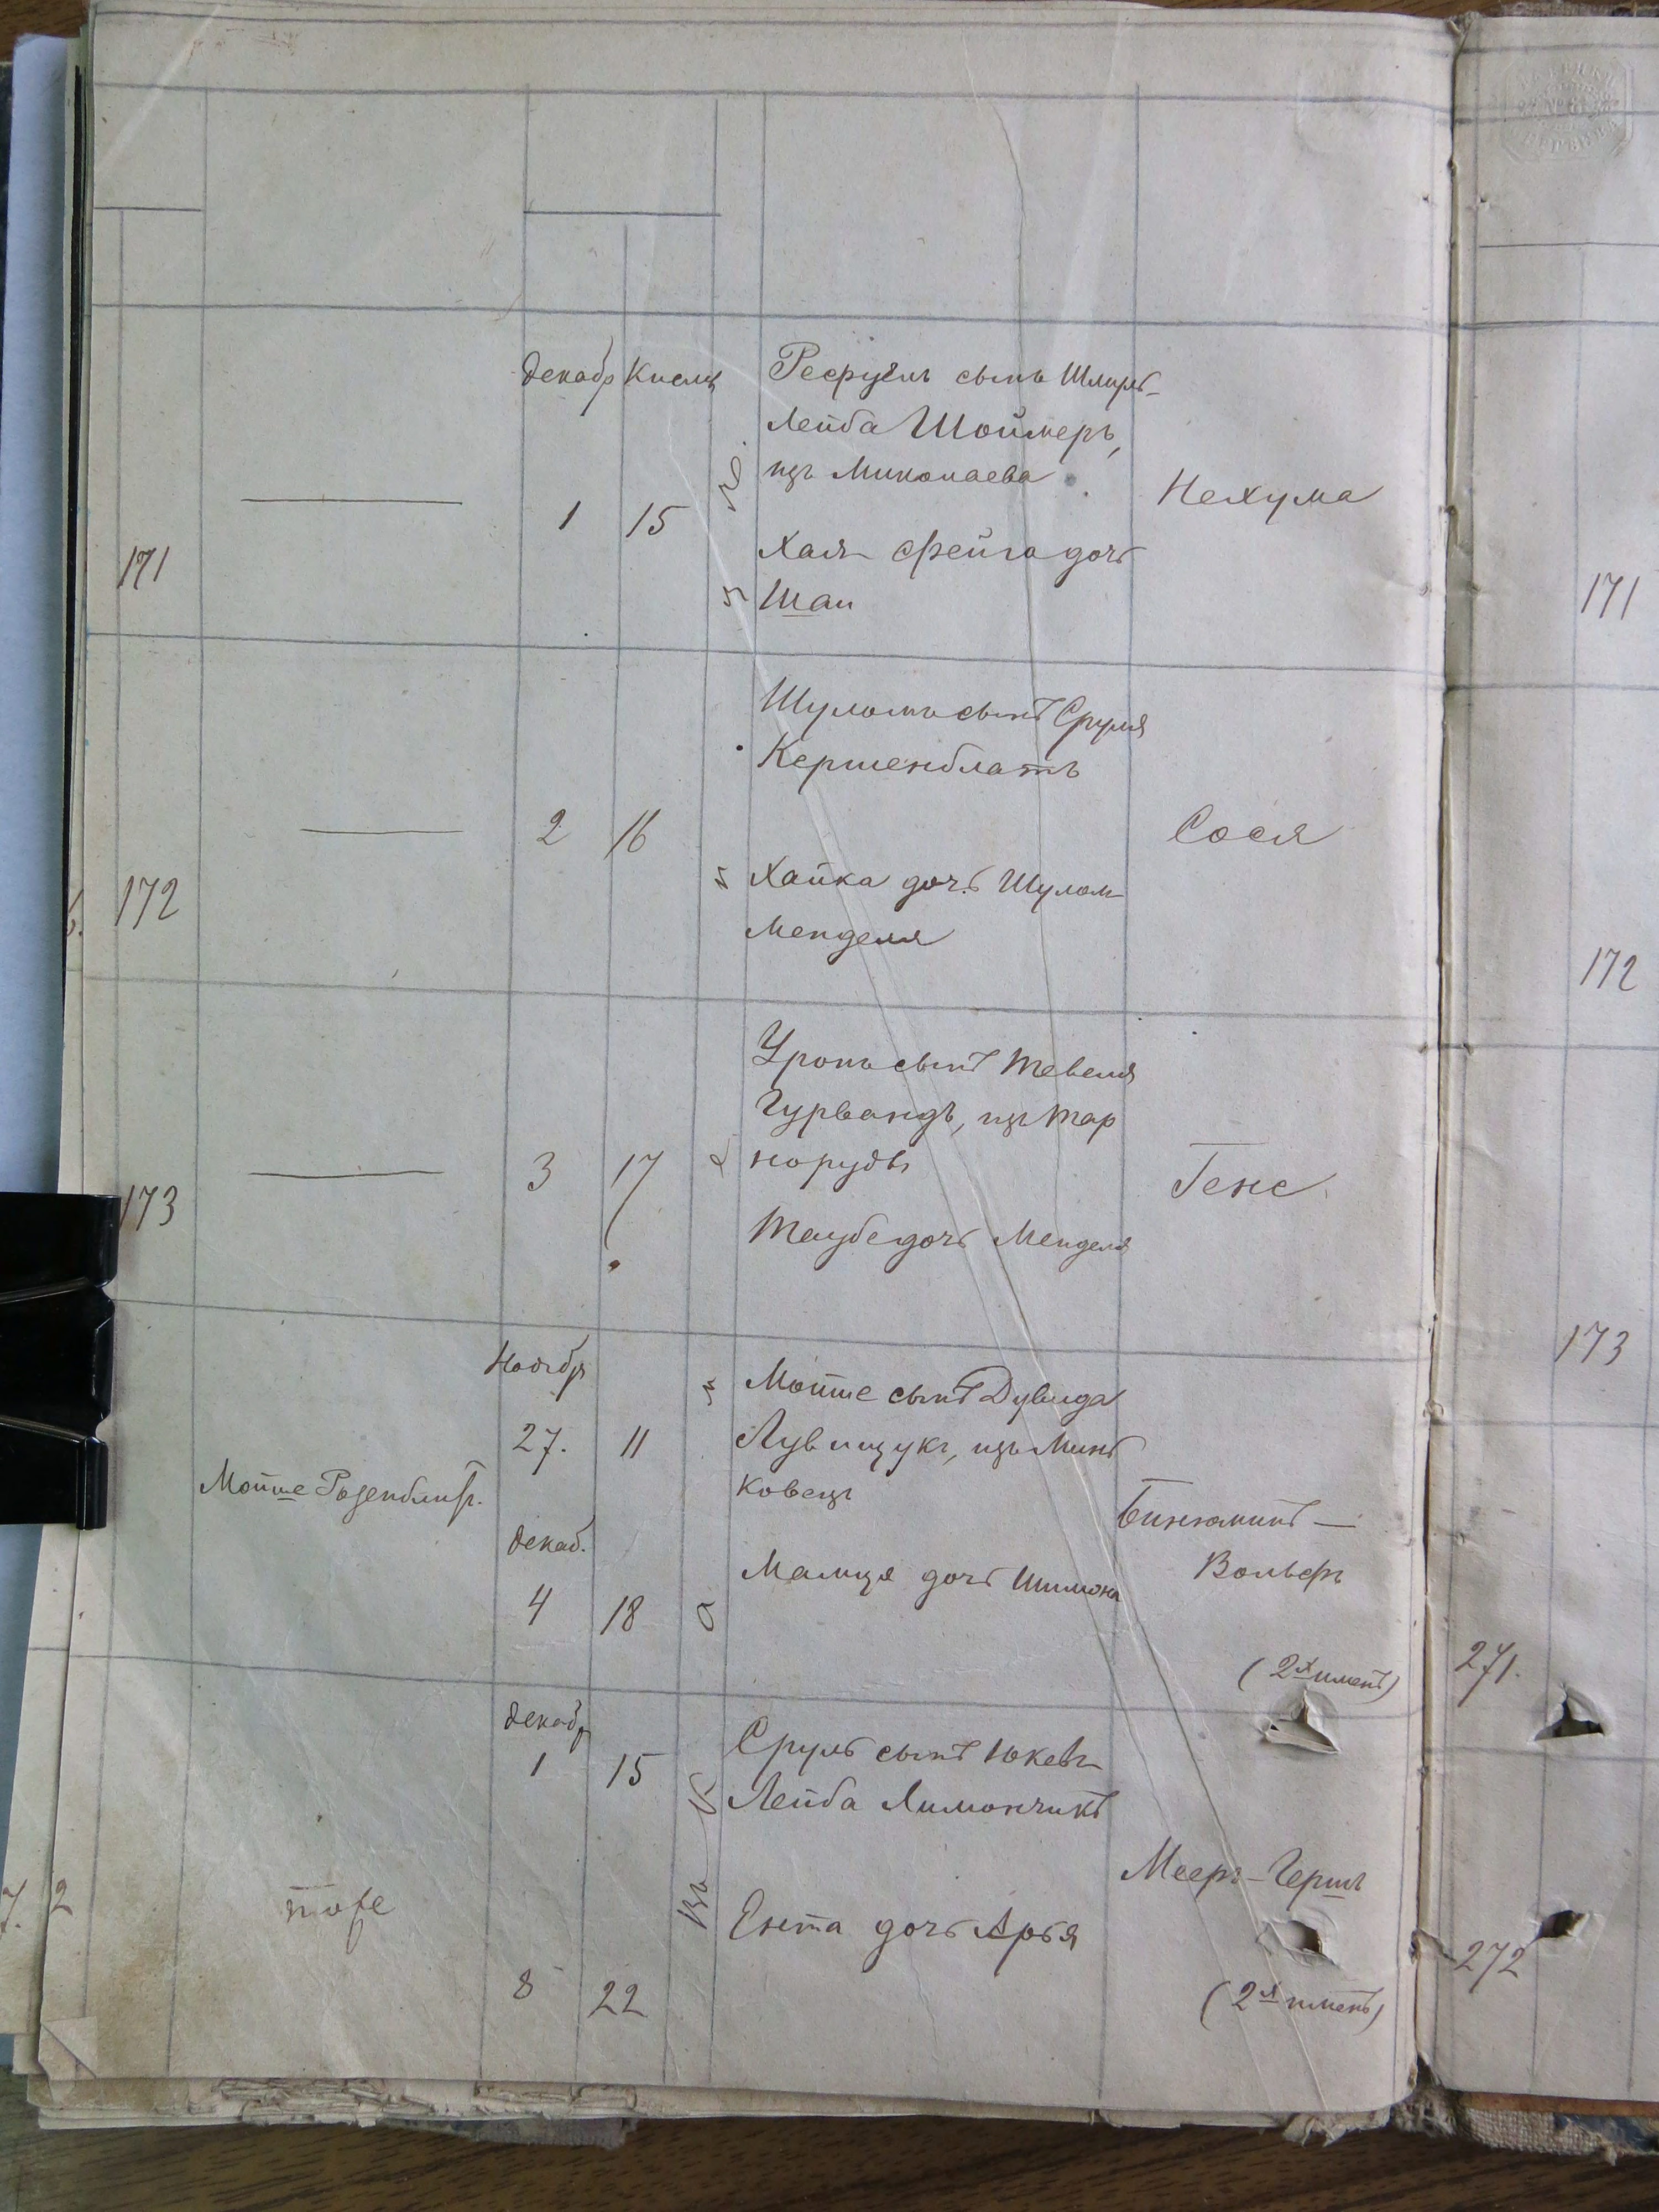 декабр Кислев
171
1 15
Рефуель сынъ Шмирь-
Лейба Шоймеръ,
изъ Миколаева
Хая Фейга дочь
Шаи
Нехума
171
172
2 16
Шуломъ сынъ Сруля
Кершенблатъ
Хайка дочь Шулом-
Менделя
Сося
172
173
3 17
Уронъ сынъ Тевеля
Гурвандъ, изъ Тар
норуды
Таубе дочь Менделя
Гене
173
Мойше Розенблитъ.
Ноябр
27. 11
декаб.
4 18
Мойше сынъ Дувида
Лувищукъ, изъ Минь
ковецъ
Малця дочь Шимона
Бинюминъ —
Вольфъ
(2х именъ)
271.
2
тоже
декабр
1 15
8 22
Сруль сынъ Юкевъ
Лейба Лимончикъ
Ента дочь Арья
Мееръ-Гершъ
(2х именъ)
272